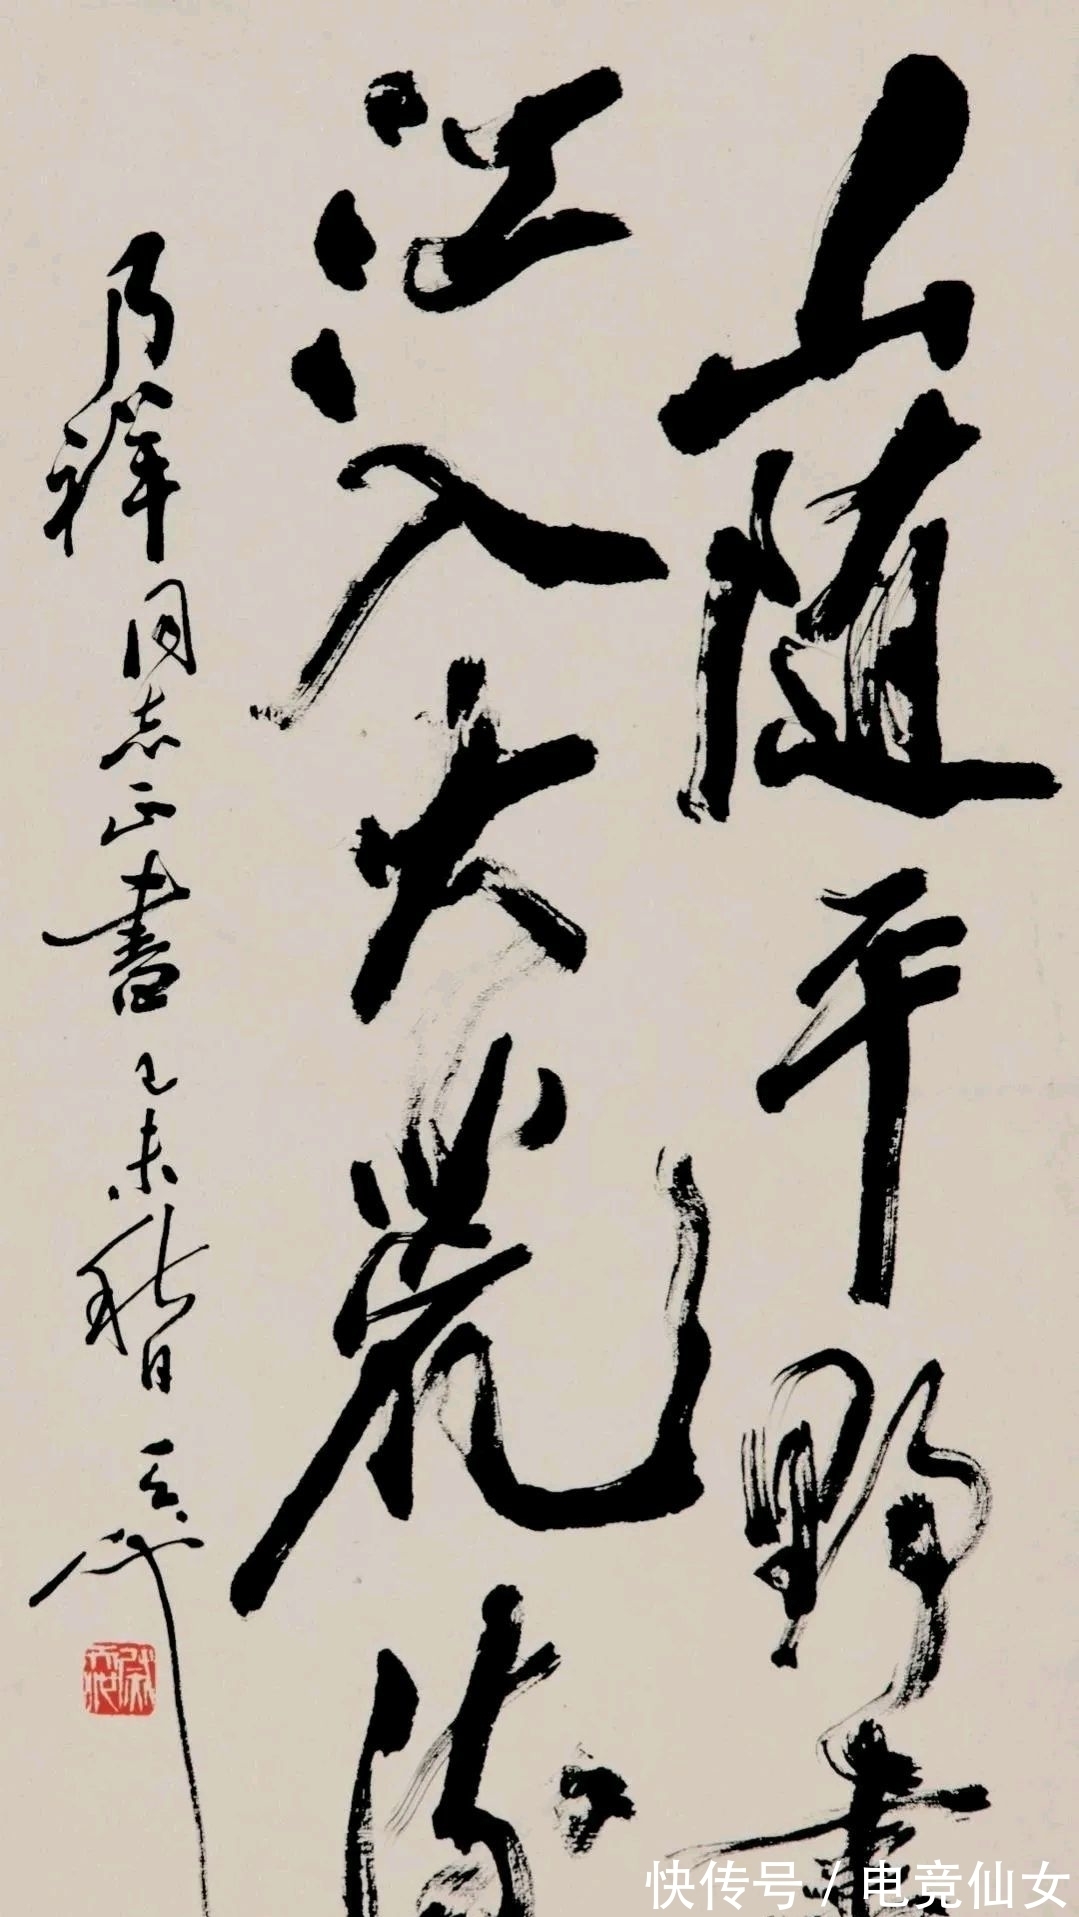 山随平野盡
江入大荒流
乃祥同志正書己未秋日天池
快传号 / 电竞仙女